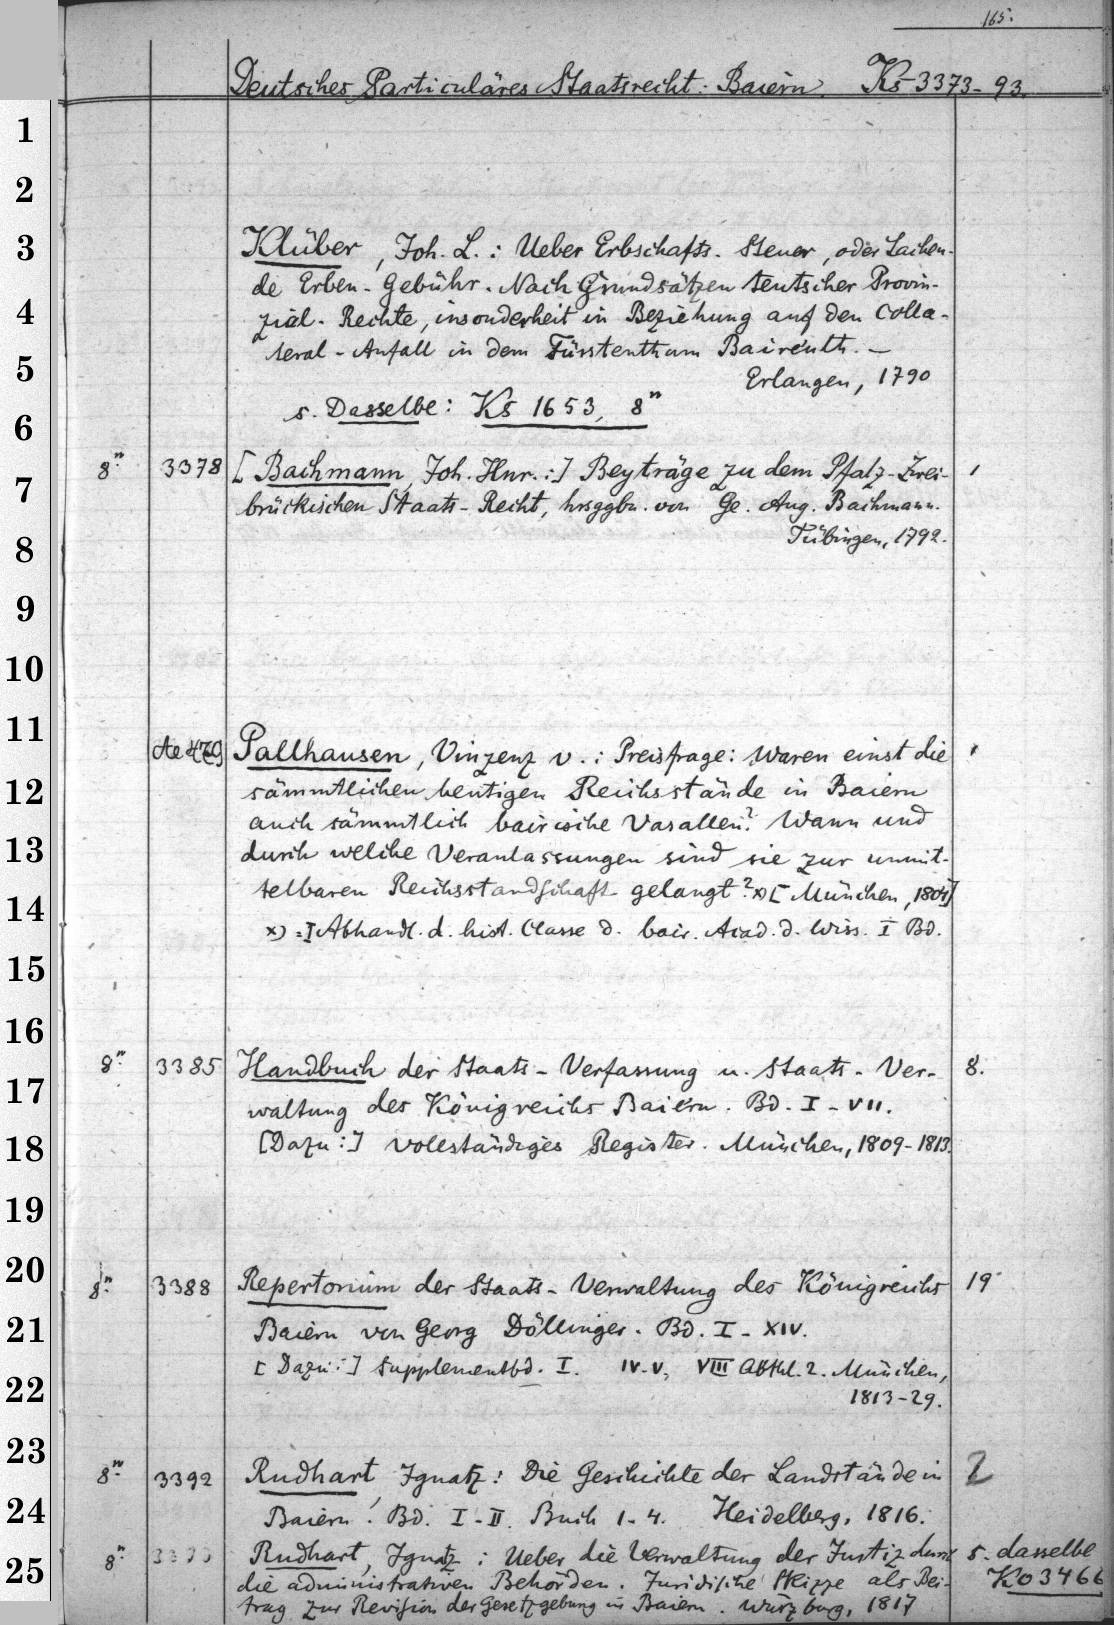 165.
Deutsches Particuläres Staatsrecht: Baiern. Ks 3373-93.
1
2
3 Klüber, Joh. L.: Ueber Erbschafts-Steuer, oder Lachen-
de Erben-Gebühr. Nach Grundsätzen teutscher Provin-
4 zial-Rechte, insonderheit in Beziehung auf den Colla-
5 teral-Anfall in dem Fürstenthum Baireuth. —
Erlangen, 1790
6 s. Dasselbe: Ks 1653, 8°
8° 3378 [Bachmann, Joh. Hnr.:] Beyträge zu dem Pfalz-Zwei- 1
7 brückischen Staats-Recht, hrsggbn. von Ge. Aug. Bachmann.
8 Tübingen, 1792.
9
10
11
Ae 479 Pallhausen, Vinzenz v.: Preisfrage: Waren einst die 1
12 sämmtlichen heutigen Reichsstände in Baiern
auch sämmtlich bairische Vasallen? Wann und
13 durch welche Veranlassungen sind sie zur unmit-
14 telbaren Reichsstandschaft gelangt? x) [München, 1804]
x) = I Abhandl. d. hist. Classe d. bair. Acad. d. Wiss. I Bd.
15
16
8° 3385 Handbuch der Staats-Verfassung u. Staats-Ver- 8.
17 waltung des Königreichs Baiern. Bd. I-VII.
18 [Dazu:] vollständiges Register. München, 1809-1813.
19
20
8° 3388 Repertorium der Staats-Verwaltung des Königreichs 19
21 Baiern von Georg Döllinger. Bd. I-XIV.
22 [Dazu:] Supplementbd. I. IV.V, VIII Abthl. 2. München,
1813-29.
23
8° 3392 Rudhart, Ignatz: Die Geschichte der Landstände in 2
24 Baiern. Bd. I-II. Buch 1-4. Heidelberg, 1816.
8° Rudhart, Ignatz: Ueber die Verwaltung der Justiz durch s. dasselbe
25 die administrativen Behörden. Juridische Skizze als Bei- Ko 3466
trag zur Revision der Gesetzgebung in Baiern. Würzburg, 1817